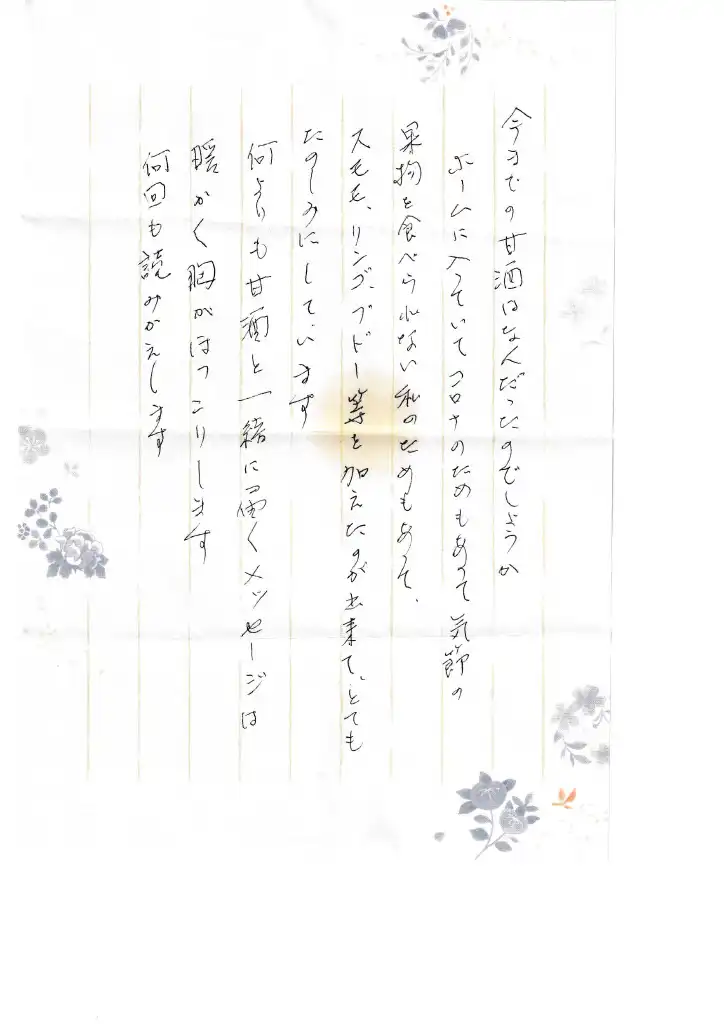 今までの甘酒はなんだったのでしょうか
ホームに入っていてコロナのためもあって気節の
果物を食べられない私のためもあって、
スモモ、リンゴ、ブドー等を加えたのが出来て、とても
たのしみにしています
何よりも甘酒と一緒に届くメッセージは
暖かく胸がほっこりします
何回も読みかえします